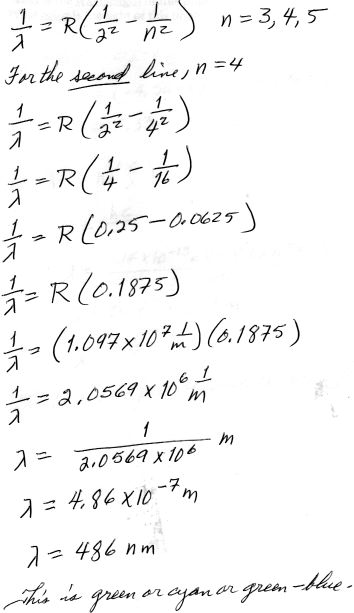 1/λ = R(1/2² - 1/n²) n = 3, 4, 5
For the second line, n = 4
1/λ = R(1/2² - 1/4²)
1/λ = R(1/4 - 1/16)
1/λ = R(0.25 - 0.0625)
1/λ = R(0.1875)
1/λ = (1.097 x 10⁷ 1/m)(0.1875)
1/λ = 2.0569 x 10⁶ 1/m
λ = 1/(2.0569 x 10⁶) m
λ = 4.86 x 10⁻⁷ m
λ = 486 nm
This is green or cyan or green-blue.